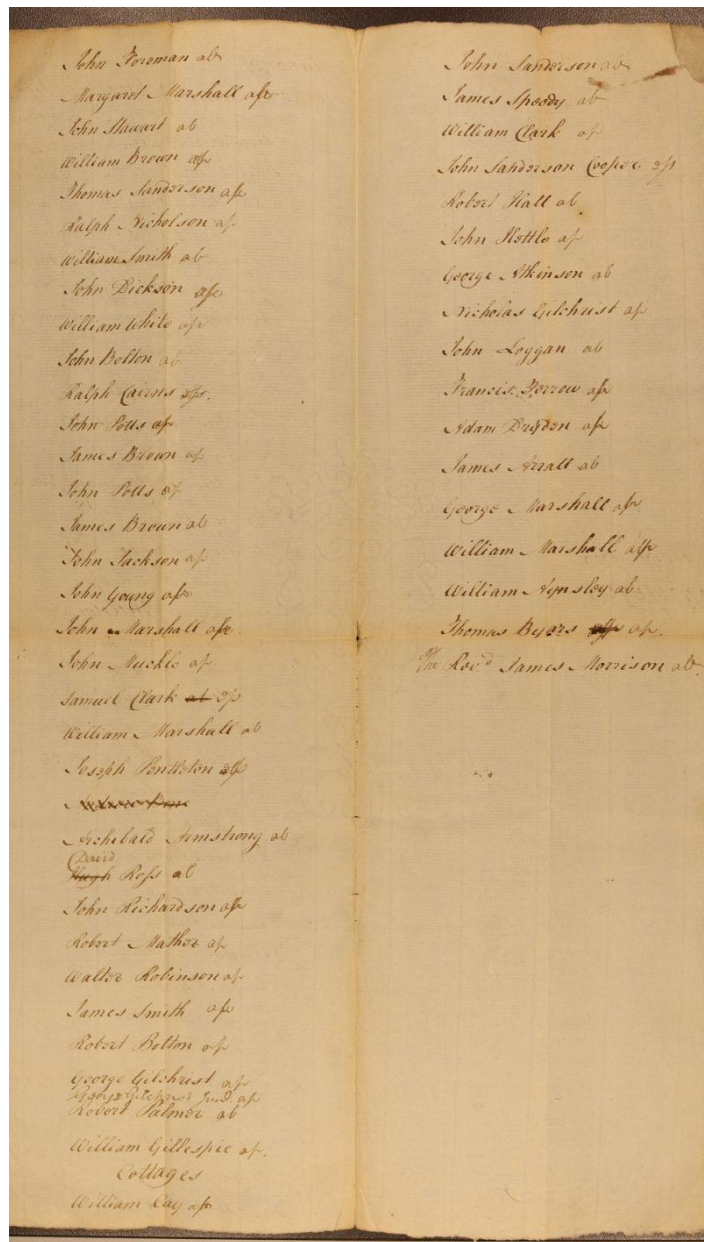 John Foreman ab
Margaret Marshall ap
John Stawart ab
William Brown ap
Thomas Sanderson ap
Ralph Nicholson ap
William Smith ab
John Dickson ap
William White ap
John Bolton ab
Ralph Cairns ap
John Potts ap
James Brown ap
John Potts ap
James Brown ab
John Jackson ap
John Young ap
John Marshall ap
John Muckle ap
Samuel Clark ab ap
William Marshall ab
Joseph Pentleton ap
Archibald Armstrong ab
David
Hugh Ross ab
John Richardson ap
Robert Mather ap
Walter Robinson ap
James Smith ap
Robert Bolton ap
George Gilchrist ap
George Gilchrist Jun.r ap
Robert Palmer ab
William Gillespie ap
Cottages
William Cay ap
John Sanderson ab
James Speedy ab
William Clark ap
John Sanderson Cooper ap
Robert Hall ab
John Kettle ap
George Atkinson ab
Nicholas Gilchrist ap
John Loggan ab
Francis ap
Adam Dryden ap
James Arratt ab
George Marshall ap
William Marshall ap
William Aynsley ab
Thomas Byers ap ap
The Rev.d James Morrison ab